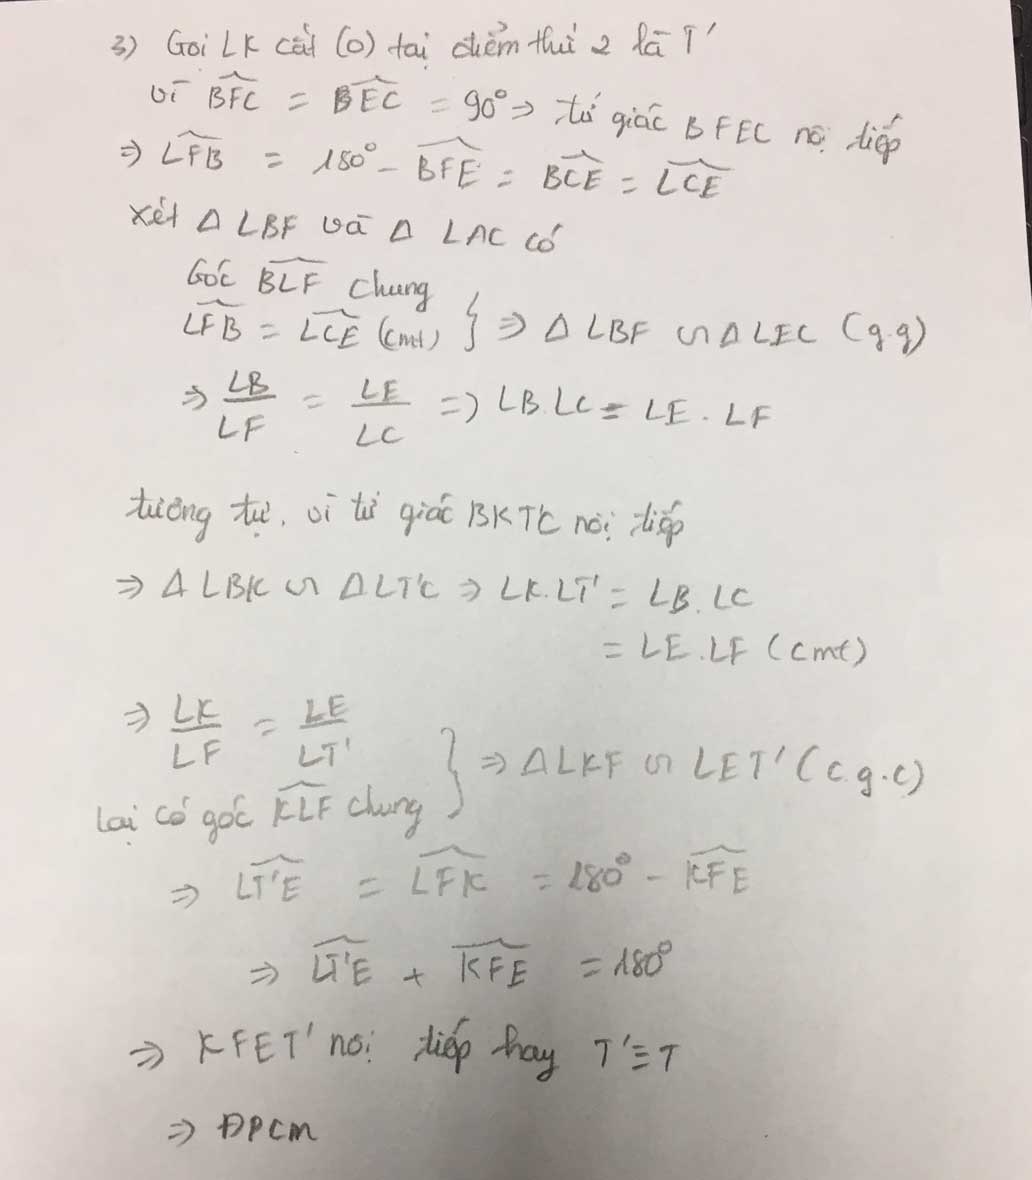 3) Gọi LK cắt (O) tại điểm thứ 2 là T'
vì BFC = BEC = 90° => tứ giác BFEC nội tiếp
=> LFB = 180° - BFE = BCE = LCE
xét Δ LBF và Δ LAC có
Góc BLF chung
LFB = LCE (cmt) } => Δ LBF ∽ Δ LEC (g.g)
=> LB/LF = LE/LC => LB.LC = LE.LF
tương tự, vì tứ giác BKT'C nội tiếp
=> Δ LBK ∽ Δ LT'C => LK.LT' = LB.LC
= LE.LF (cmt)
=> LK/LF = LE/LT'
lại có góc KLF chung } => Δ LKF ∽ LET' (c.g.c)
=> LT'E = LFK = 180° - KFE
=> LT'E + KFE = 180°
=> KFET' nội tiếp hay T' ≡ T
=> ĐPCM